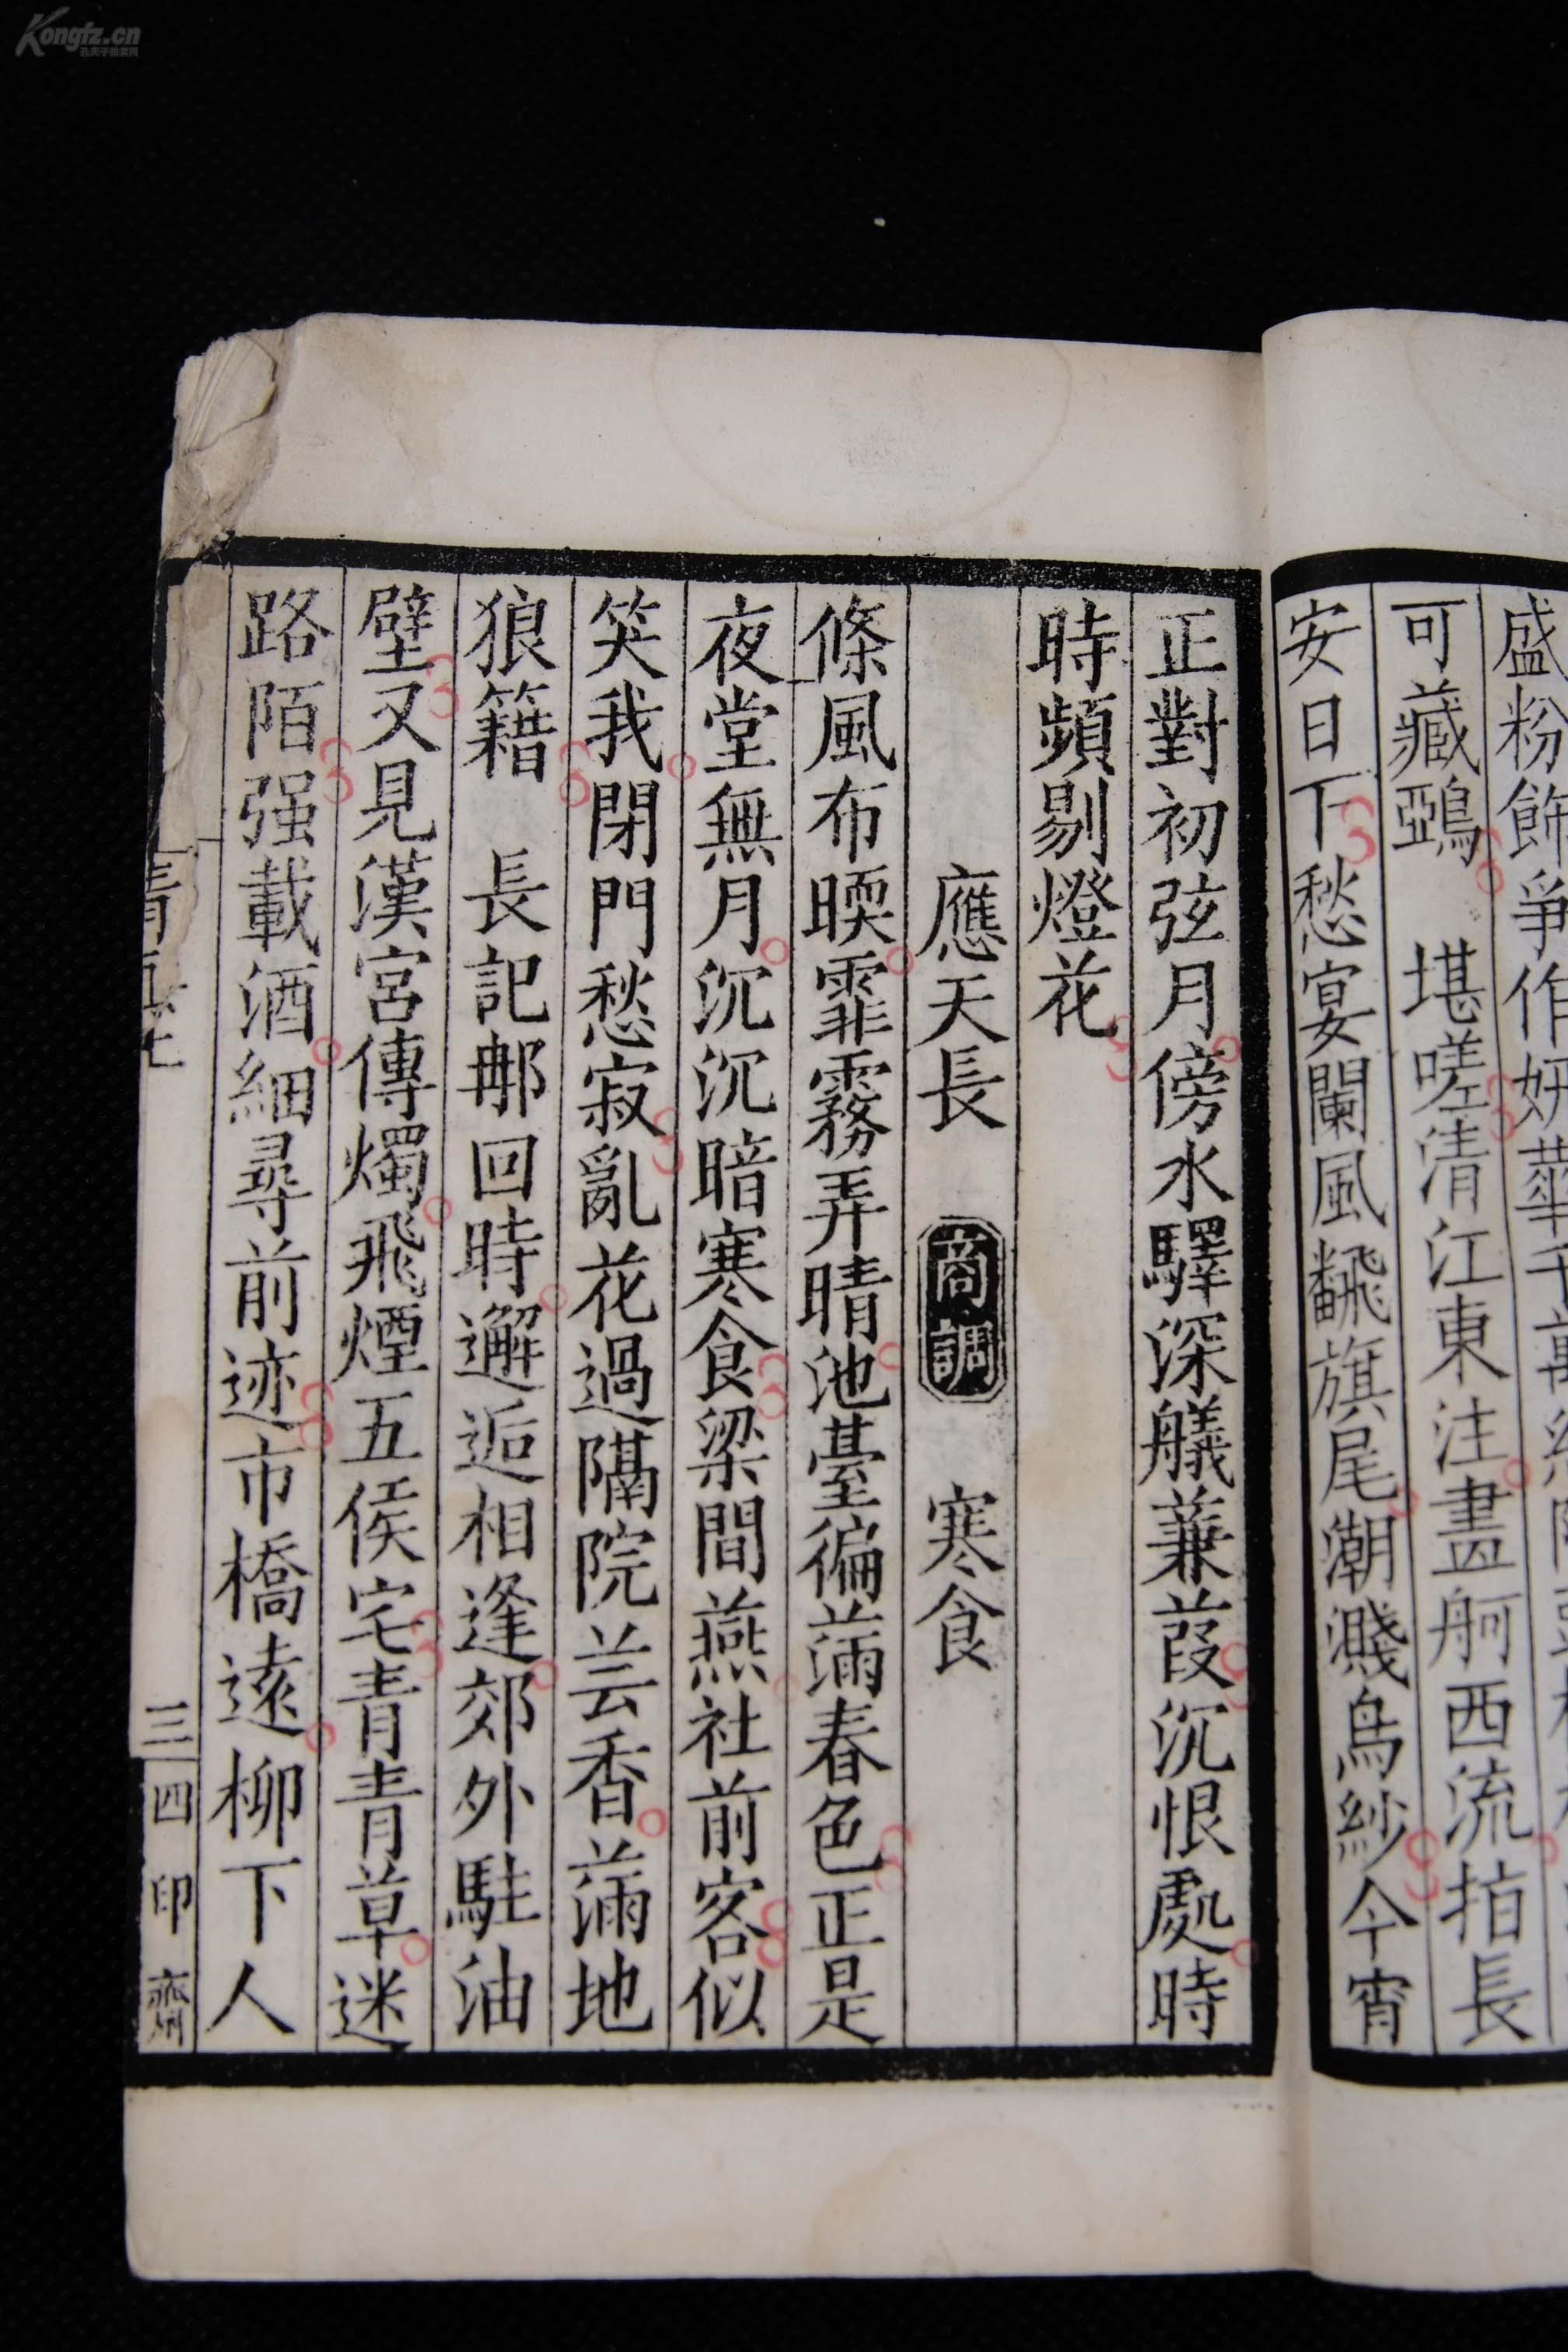 Kongfz.cn
孔夫子拍卖网
盛粉飾爭作妍華千萬
可藏鵶　堪嗟清江東注畫舸西流指長
安日下愁宴闌風飜旗尾潮濺烏紗今宵
正對初弦月傍水驛深艤蒹葭沉恨處時
時頻剔燈花
應天長　商調　寒食
條風布暖霏霧弄晴池臺徧滿春色正是
夜堂無月沉沉暗寒食梁間燕社前客似
笑我閉門愁寂亂花過隔院芸香滿地
狼籍　長記那回時邂逅相逢郊外駐油
壁又見漢宮傳燭飛煙五侯宅青青草迷
路陌强載酒細尋前迹市橋遠柳下人
三
四印齋